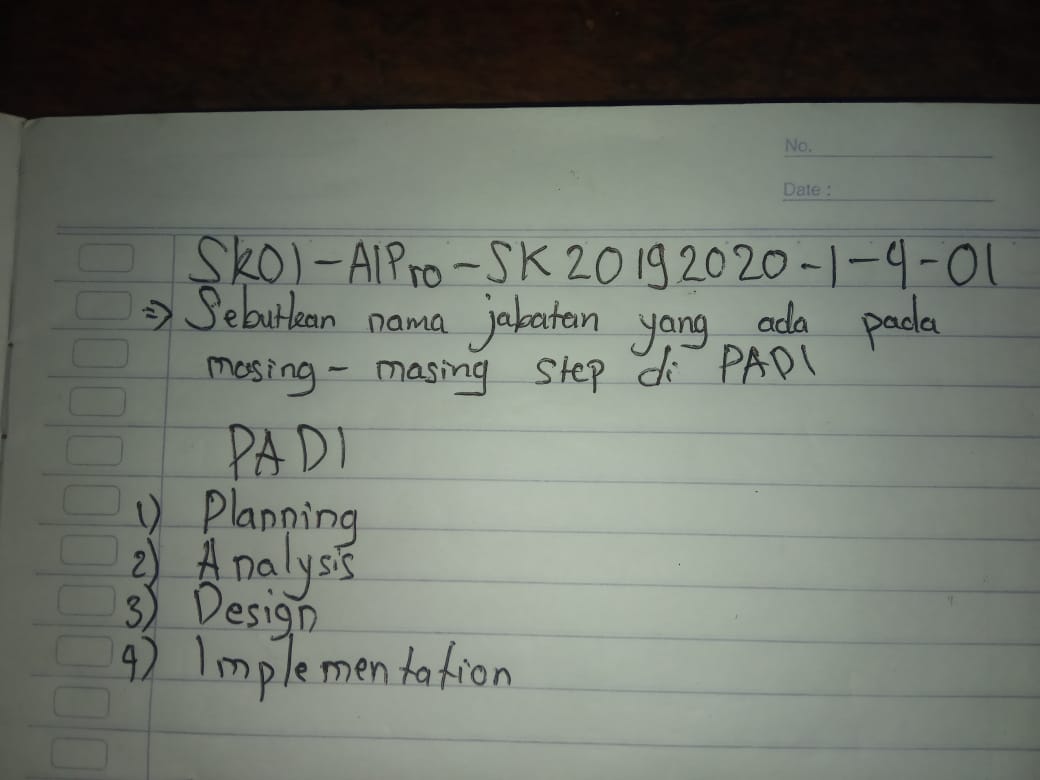 No.
Date :
SK01-AlPro-SK20192020-1-4-01
=> Sebutkan nama jabatan yang ada pada
masing - masing step di PADI
PADI
1) Planning
2) Analysis
3) Design
4) Implementation